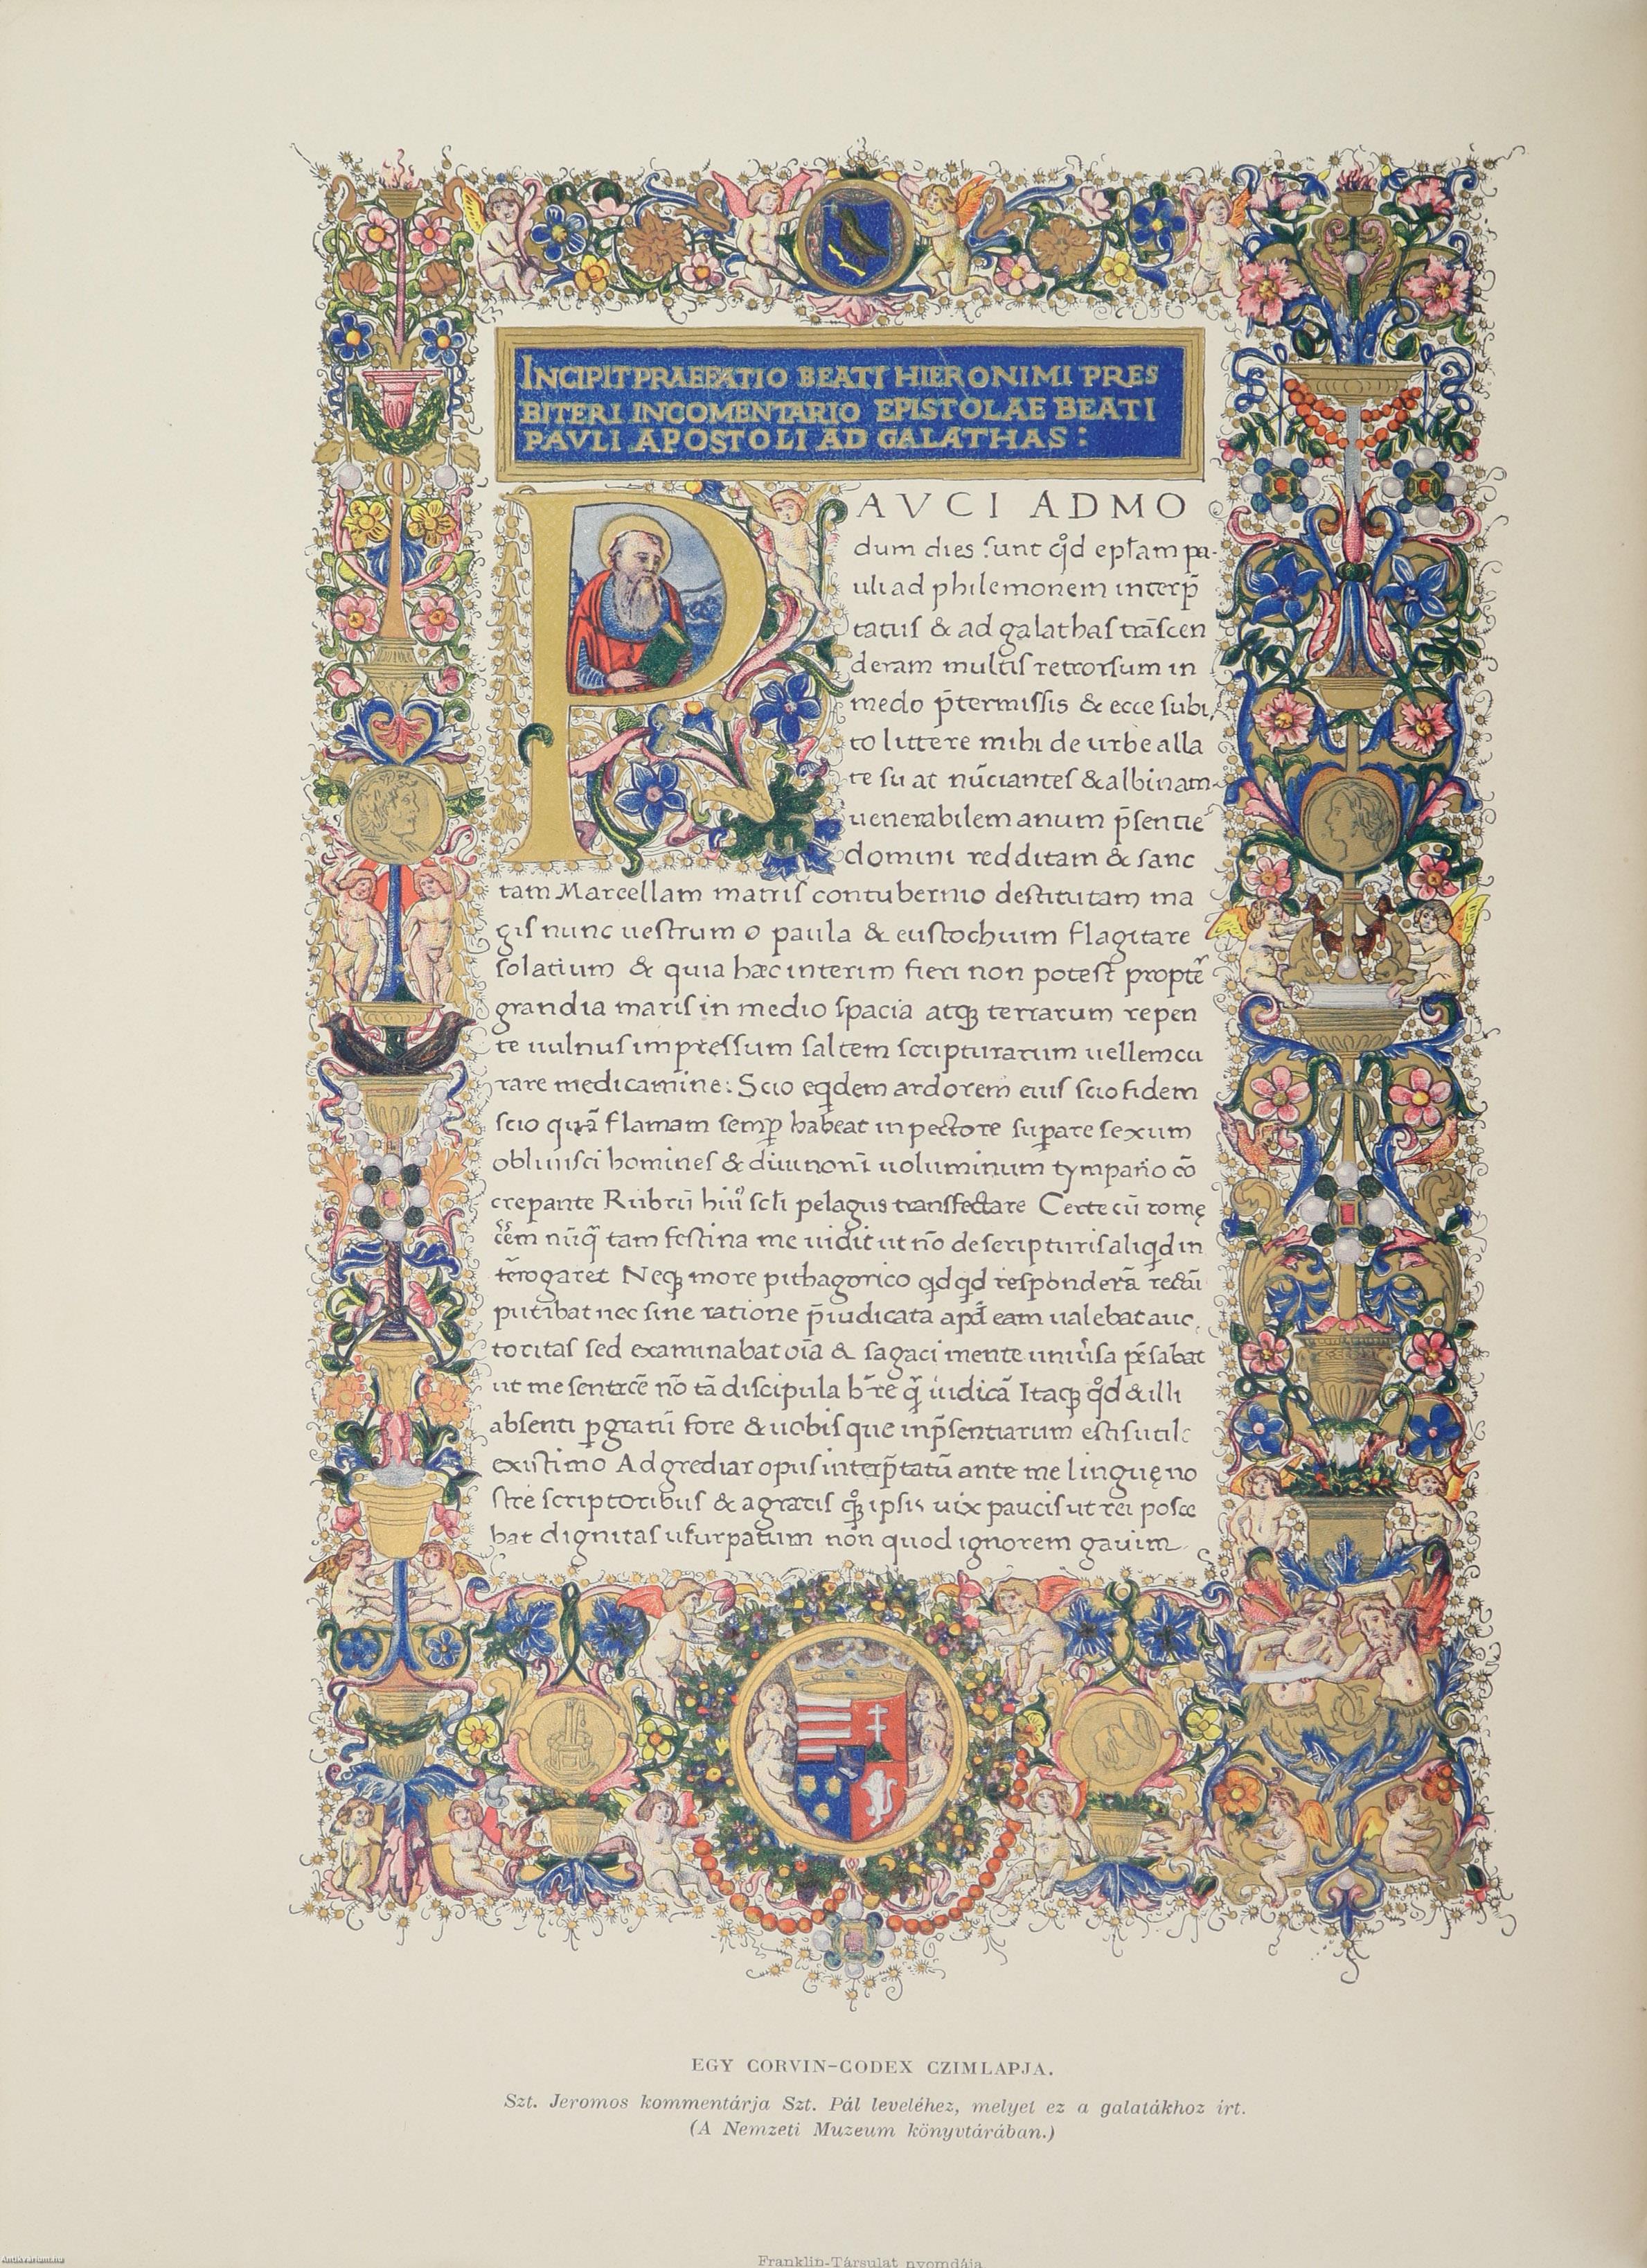 INCIPIT PRAEFATIO BEATI HIERONIMI PRES
BITERI IN COMENTARIO EPISTOLAE BEATI
PAVLI APOSTOLI AD GALATHAS:
PAVCI ADMO
dum dies sunt qd̊ epłam pa-
uli ad philemonem interp̄
tatus & ad galathas trāscen
deram multis retrorsum in
medo p̄termissis & ecce subi,
to littere mihi de urbe alla
te su at nūciantes & albinam
uenerabilem anum p̄sentie
domini redditam & sanc
tam Marcellam matris contubernio destitutam ma
gis nunc uestrum o paula & eustochium flagitare
solatium & quia hæc interim fieri non potest propte᷑
grandia maris in medio spacia atq; terrarum repen
te uulnus impressum saltem scripturarum uellem cu
rare medicamine: Scio eqdem ardorem eius scio fidem
scio quā flamam semp̱ habeat in pectore suꝑare sexum
obliuisci homines & diuinoꝝ uoluminum tympano cō
crepante Rubrū hiuͦ scłi pelagus transfectare Certe cū romę
eēm nūq̄ tam festina me uidit ut nō de scripturis aliqd in
terogaret Neq; more pithagorico qdqd responderā rectū
putabat nec sine ratione p̄iudicata apd̄ eam ualebat auc,
toritas sed examinabat oīa & sagaci mente uniu᷑sa pēsabat
ut me sentircē nō tā discipula h̄re q̄ iudicā Itaq; qd̊ & illi
absenti ꝑgratū fore & uobis que inp̄sentiarum estis utile
existimo Adgrediar opus interp̄tatū ante me linguę no
stre scriptoribus & a græcis ipsis uix paucis ut rei posce
bat dignitas usurpatum non quod ignorem gauim
EGY CORVIN-CODEX CZIMLAPJA.
Szt. Jeromos kommentárja Szt. Pál leveléhez, melyet ez a galatákhoz írt.
(A Nemzeti Muzeum könyvtárában.)
Franklin-Társulat nyomdája
Antikvarium.hu